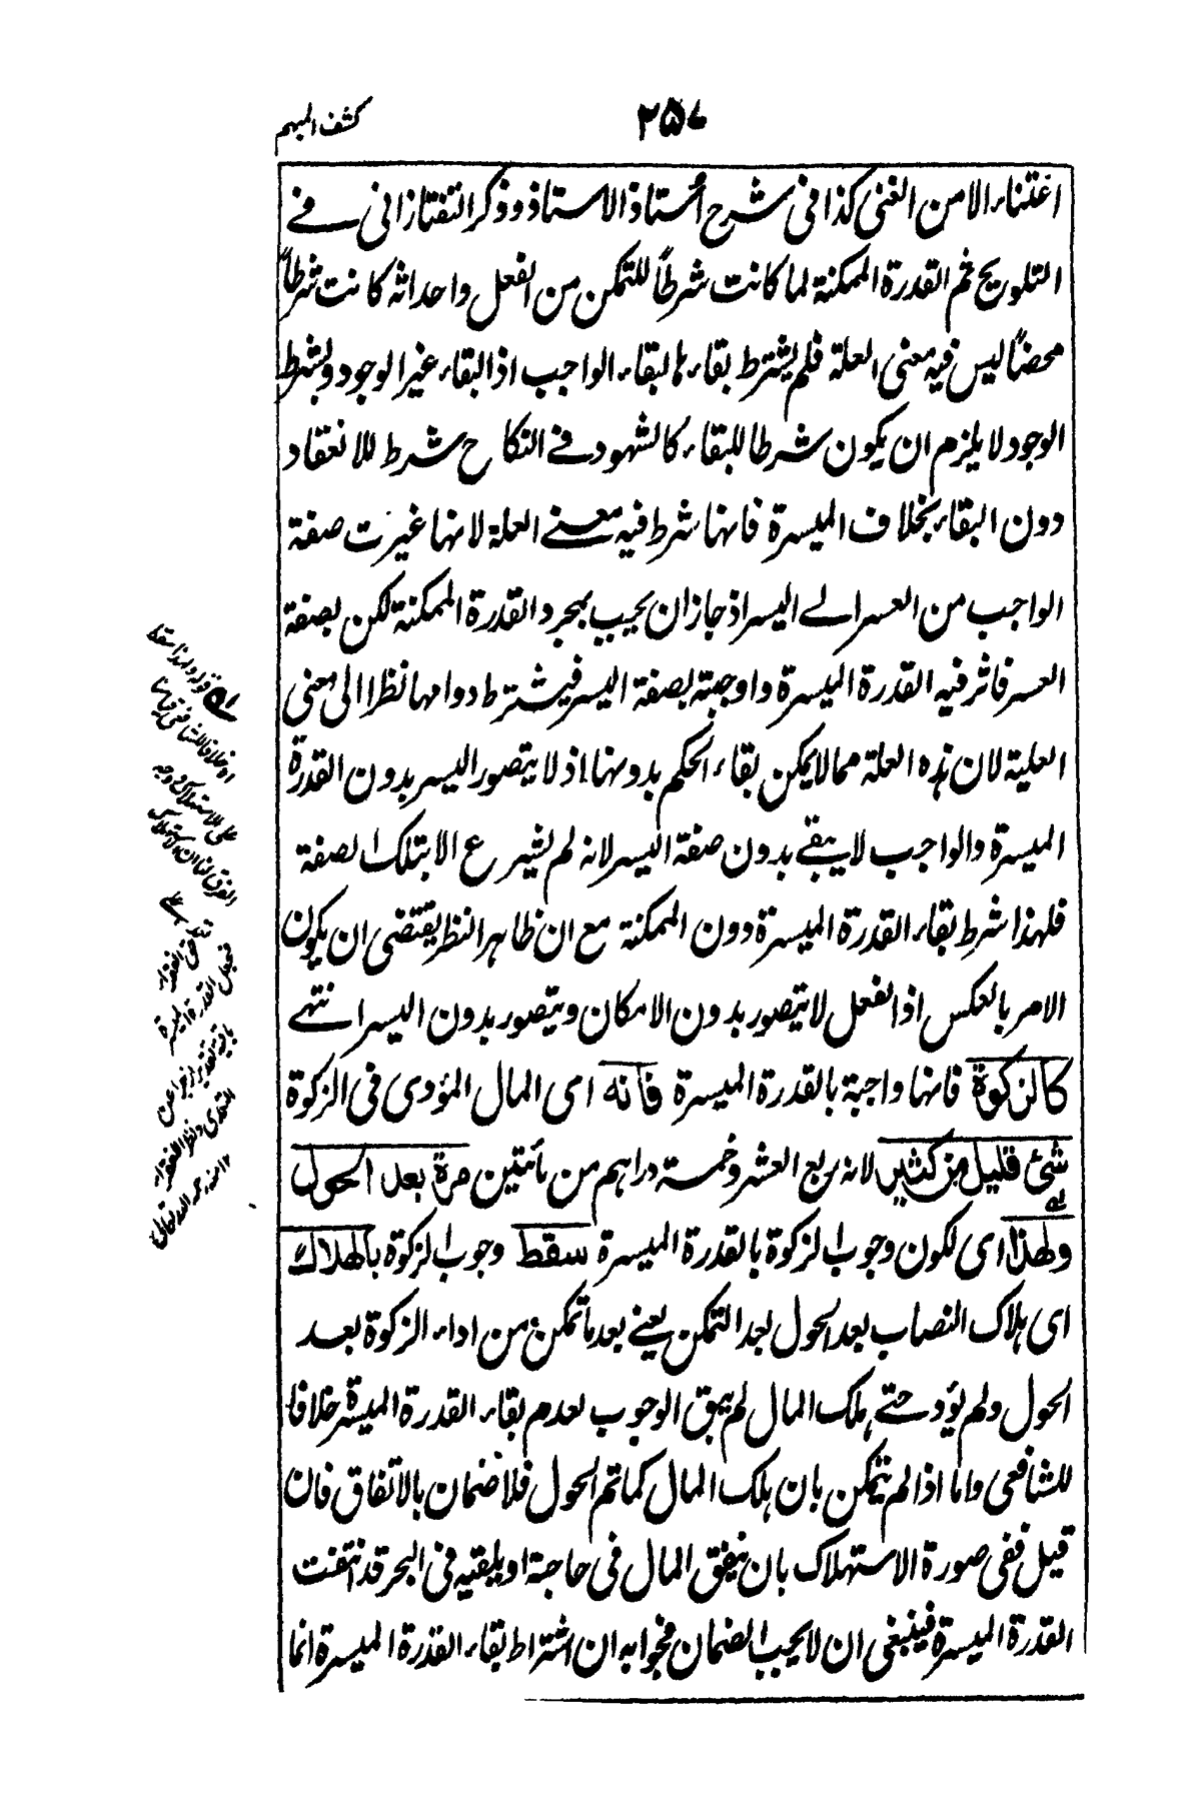 كشف المبهم
٢٥٧
اغتناء الا من الغنى كذا فى شرح أستاذ الاستاذ وذكر التفتازانى فے
التلويح ثم القدرة الممكنة لما كانت شرطاً للتمكن من الفعل واحداثه كانت شرطاً
محضاً ليس فيه معنى العلة فلم يشترط بقاءها لبقاء الواجب اذ البقاء غير الوجود وشرط
الوجود لا يلزم ان يكون شرطا للبقاء كالشهود فے النكاح شرط للانعقاد
دون البقاء بخلاف الميسرة فانها شرط فيه معنے العلة لانها غيرت صفة
الواجب من العسر الے اليسر اذ جاز ان يجب بمجرد القدرة الممكنة لكن بصفة
العسر فاثر فيه القدرة الميسرة واوجبته بصفة اليسر فيشترط دوامها نظرا الى معنى
العلية لان هذه العلة مما لا يمكن بقاء الحكم بدونها اذ لا يتصور اليسر بدون القدرة
الميسرة والواجب لا يبقے بدون صفة اليسر لانه لم يشرع الا بتلك الصفة
فلهذا شرط بقاء القدرة الميسرة دون الممكنة مع ان ظاهر النظر يقتضى ان يكون
الامر بالعكس اذ الفعل لا يتصور بدون الامكان ويتصور بدون اليسر انتهے
كالزكوة فانها واجبة بالقدرة الميسرة فانه اى المال المؤدى فى الزكوة
شئ قليل من كثير لانه ربع العشر وخمسة دراهم من مأتين مرة بعد الحول
ولهذا اى لكون وجوب الزكوة بالقدرة الميسرة سقط وجوب الزكوة بالهلاك
اى هلاك النصاب بعد الحول بعد التمكن يعنے بعد ما تمكن من اداء الزكوة بعد
الحول ولم يؤد حتے هلك المال لم يبق الوجوب لعدم بقاء القدرة الميسرة خلافا
للشافعى واما اذا لم يتمكن بان هلك المال كما تم الحول فلا ضمان بالاتفاق فان
قيل ففى صورة الاستهلاك بان ينفق المال فى حاجة او يلقيه فى البحر قد انتفت
القدرة الميسرة فينبغى ان لا يجب الضمان فجوابه ان اشتراط بقاء القدرة الميسرة انما
قوله ولهذا سقط